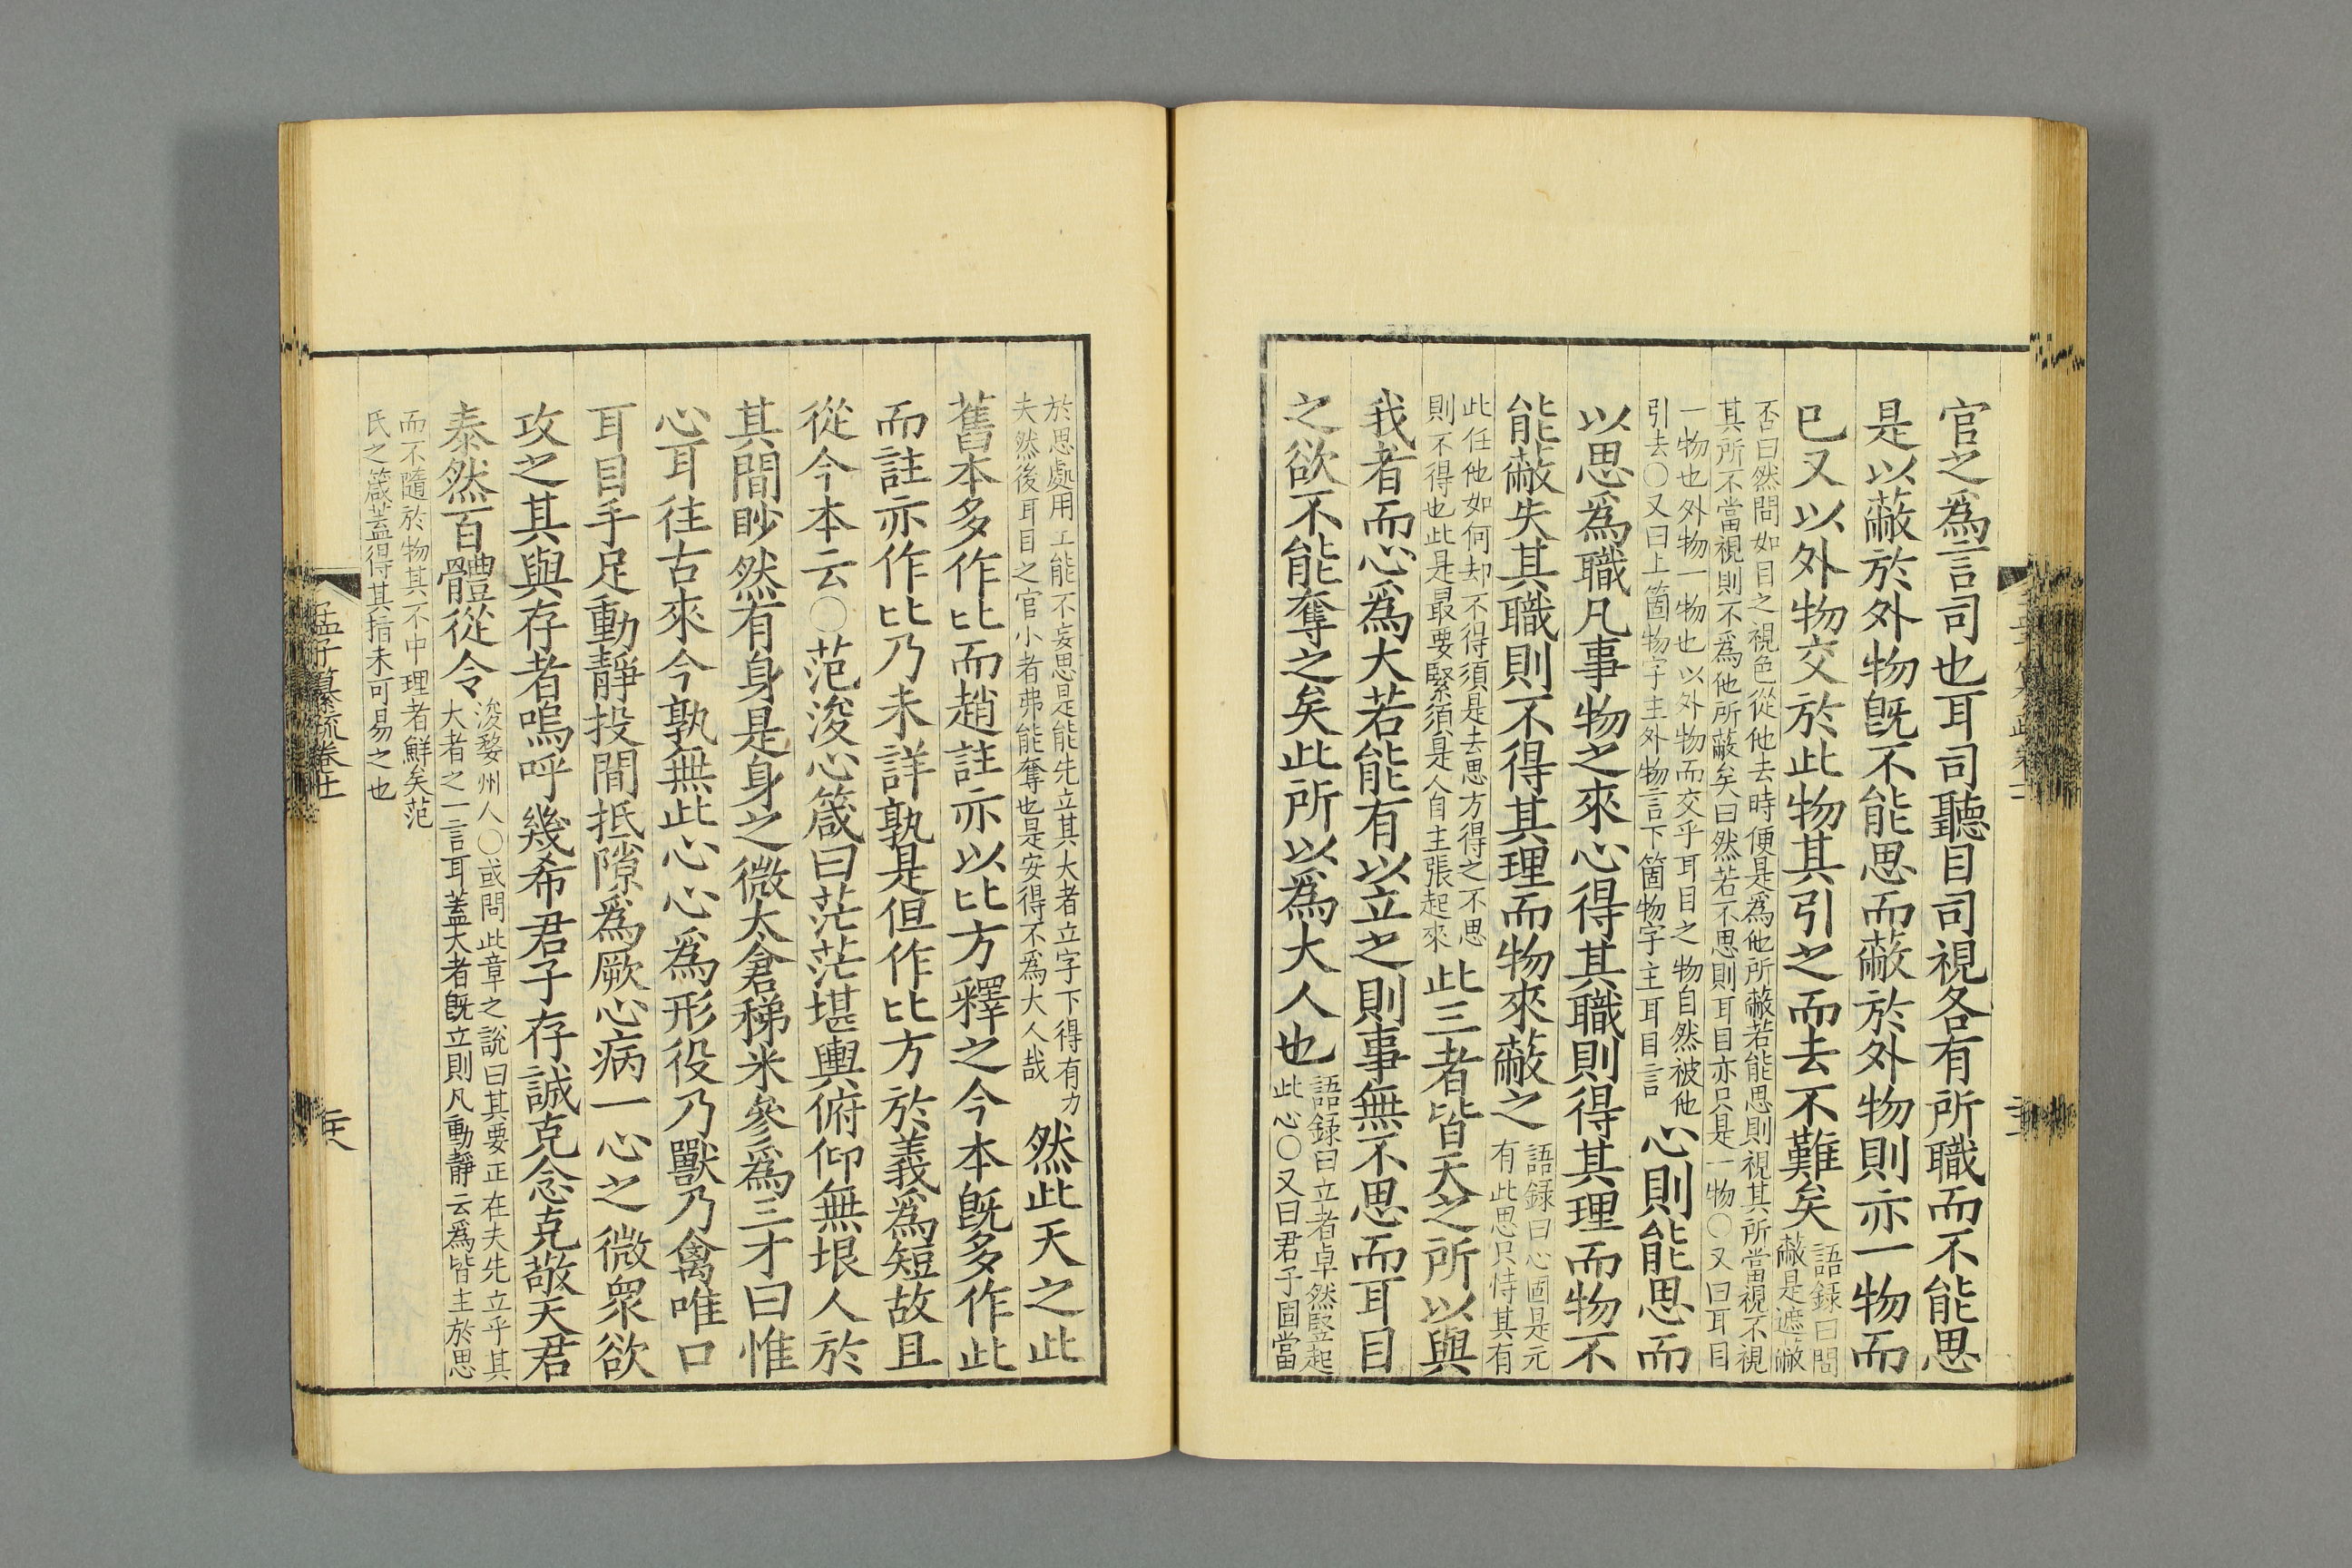 官之爲言司也耳司聽目司視各有所職而不能思
是以蔽於外物旣不能思而蔽於外物則亦一物而
已又以外物交於此物其引之而去不難矣語錄曰問蔽是遮蔽
否曰然問如目之視色從他去時便是爲他所蔽若能思則視其所當視不視
其所不當視則不爲他所蔽矣曰然若不思則耳目亦只是一物○又曰耳目
一物也外物一物也以外物而交乎耳目之物自然被他
引去○又曰上箇物字主外物言下箇物字主耳目言心則能思而
以思爲職凡事物之來心得其職則得其理而物不
能蔽失其職則不得其理而物來蔽之語錄曰心固是元有此思只恃其有
此任他如何却不得須是去思方得之不思
則不得也此是最要緊須是人自主張起來此三者皆天之所以與
我者而心爲大若能有以立之則事無不思而耳目
之欲不能奪之矣此所以爲大人也語錄曰立者卓然竪起此心○又曰君子固當
於思處用工能不妄思是能先立其大者立字下得有力
夫然後耳目之官小者弗能奪也是安得不爲大人哉然此天之此
舊本多作比而趙註亦以比方釋之今本旣多作此
而註亦作比乃未詳孰是但作比方於義爲短故且
從今本云○范浚心箴曰茫茫堪輿俯仰無垠人於
其間眇然有身是身之微太倉稊米參爲三才曰惟
心耳往古來今孰無此心心爲形役乃獸乃禽唯口
耳目手足動靜投間抵隙爲厥心病一心之微衆欲
攻之其與存者嗚呼幾希君子存誠克念克敬天君
泰然百體從令浚婺州人○或問此章之說曰其要正在夫先立乎其大者之一言耳蓋大者旣立則凡動靜云爲皆主於思
而不隨於物其不中理者鮮矣范
氏之箴蓋得其指未可易之也
孟子纂疏卷十一